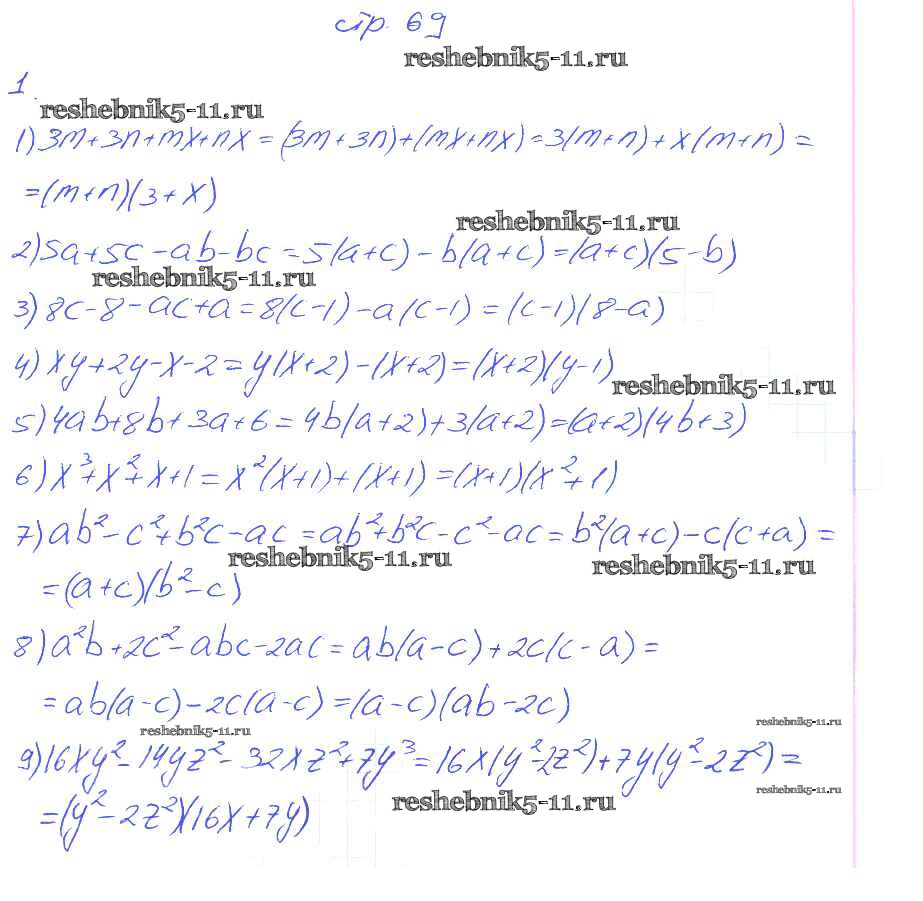 стр. 69
reshebnik5-11.ru
1
reshebnik5-11.ru
1) 3m+3n+mx+nx = (3m+3n)+(mx+nx) = 3(m+n)+x(m+n) =
= (m+n)(3+x)
reshebnik5-11.ru
2) 5a+5c-ab-bc = 5(a+c)-b(a+c) = (a+c)(5-b)
reshebnik5-11.ru
3) 8c-8-ac+a = 8(c-1)-a(c-1) = (c-1)(8-a)
4) xy+2y-x-2 = y(x+2)-(x+2) = (x+2)(y-1)
reshebnik5-11.ru
5) 4ab+8b+3a+6 = 4b(a+2)+3(a+2) = (a+2)(4b+3)
6) x³+x²+x+1 = x²(x+1)+(x+1) = (x+1)(x²+1)
7) ab²-c²+b²c-ac = ab²+b²c-c²-ac = b²(a+c)-c(c+a) =
reshebnik5-11.ru reshebnik5-11.ru
= (a+c)(b²-c)
8) a²b+2c²-abc-2ac = ab(a-c)+2c(c-a) =
= ab(a-c)-2c(a-c) = (a-c)(ab-2c)
reshebnik5-11.ru reshebnik5-11.ru
9) 16xy²-14yz²-32xz²+7y³ = 16x(y²-2z²)+7y(y²-2z²) =
reshebnik5-11.ru reshebnik5-11.ru
= (y²-2z²)(16x+7y)